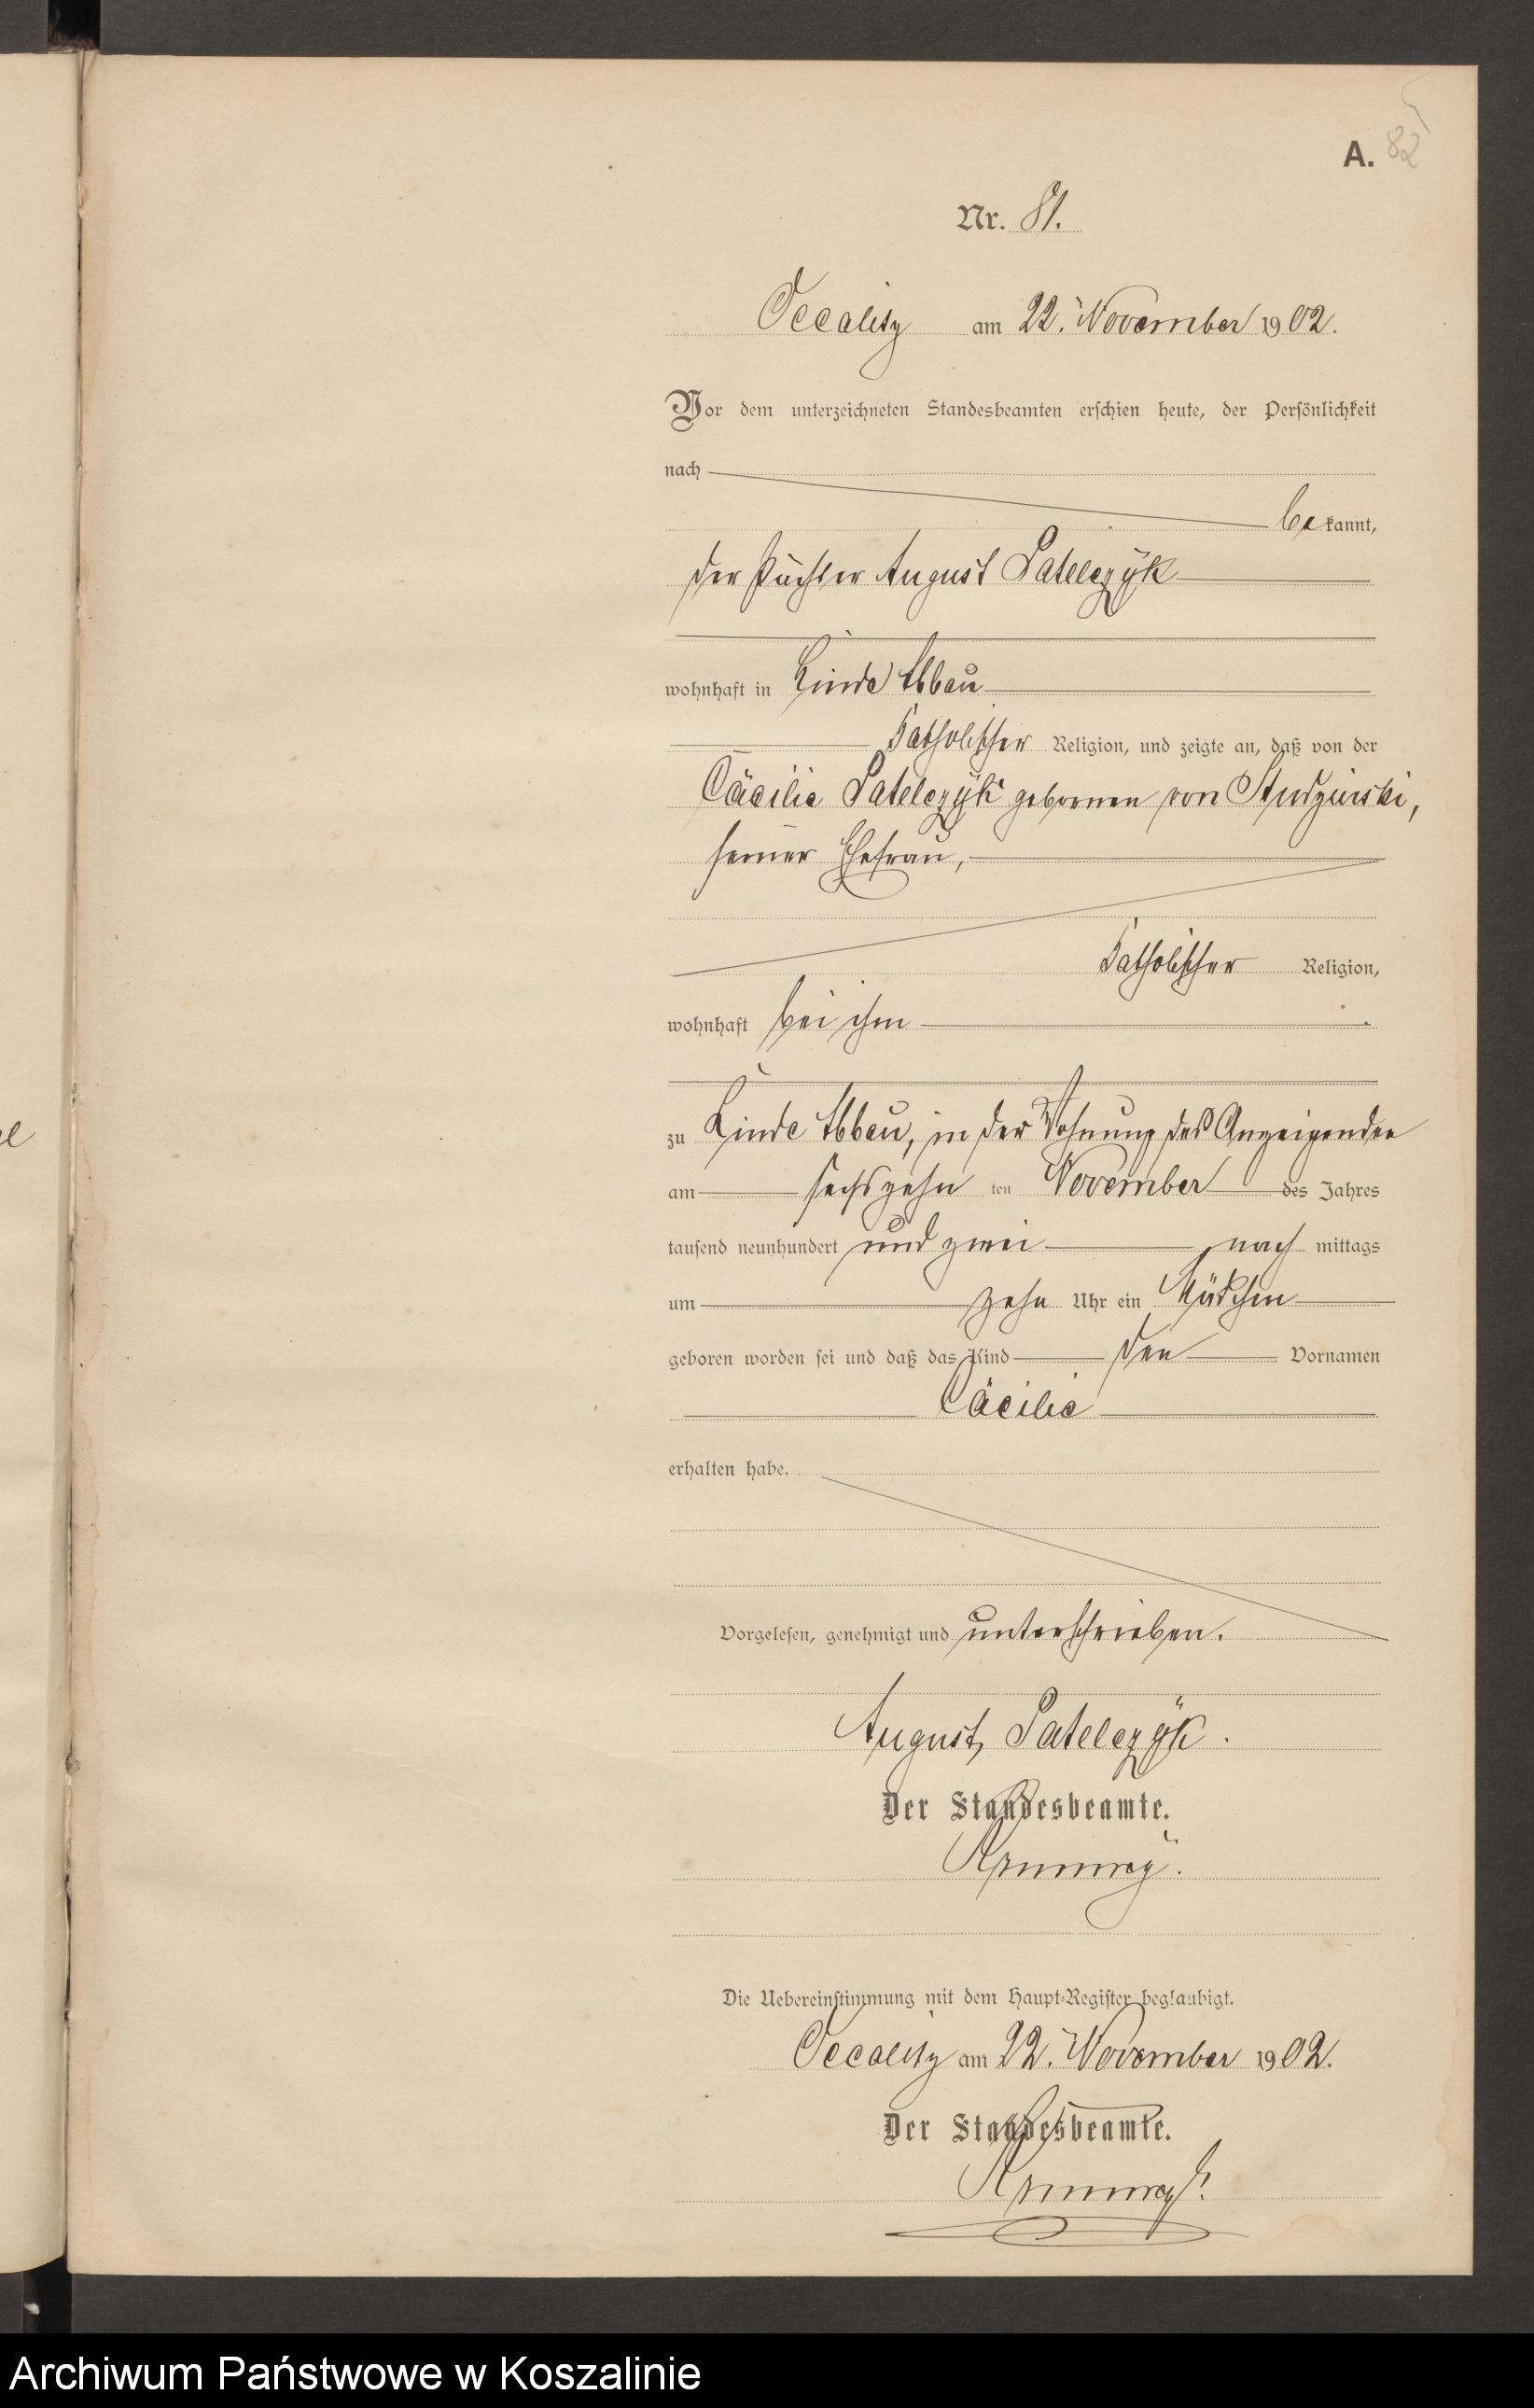 A. 82
Nr. 81.
Occalitz am 22. November 1902.
Vor dem unterzeichneten Standesbeamten erschien heute, der Persönlichkeit
nach
bekannt,
der Pächter August Patelczÿk
wohnhaft in Linde Abbau
katholischer Religion, und zeigte an, daß von der
Cäcilie Patelczÿk gebornen von Studzinski,
seiner Ehefrau,
katholischer Religion,
wohnhaft bei ihm
zu Linde Abbau, in der Wohnung des Anzeigenden
am sechszehn ten November des Jahres
tausend neunhundert und zwei nach mittags
um zehn Uhr ein Mädchen
geboren worden sei und daß das Kind den Vornamen
Cäcilie
erhalten habe.
Vorgelesen, genehmigt und unterschrieben.
August Patelczÿk.
Der Standesbeamte.
Die Uebereinstimmung mit dem Haupt-Register beglaubigt.
Occalitz am 22. November 1902.
Der Standesbeamte.
Archiwum Państwowe w Koszalinie